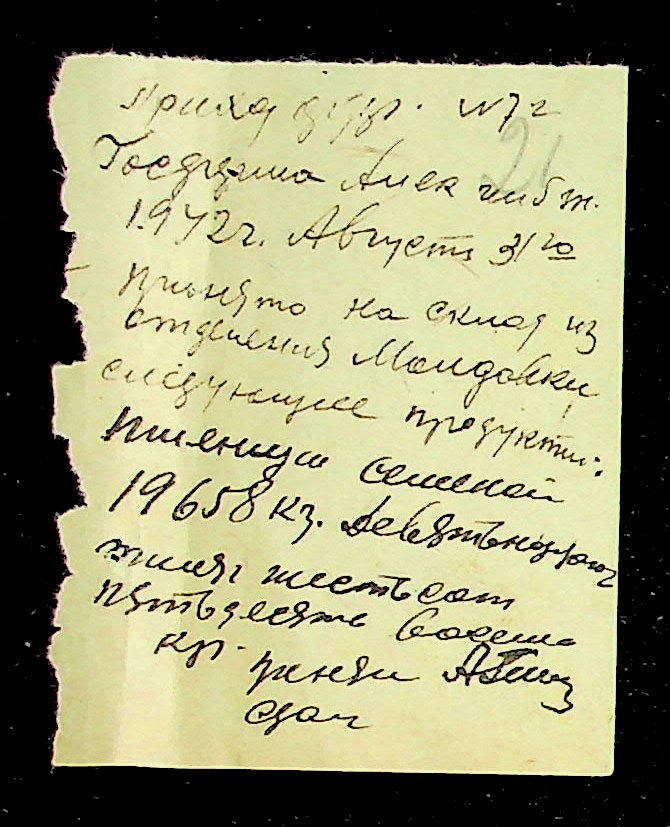 Приход
21
1942г. Августа 31го
Принято на склад из
отделения Молдовки
следующие продукты:
Пшеницы семеной
19658 кг. Девятьнадцать
тысяч шестьсот
пятьдесять восемь
кгр.
принял
сдал